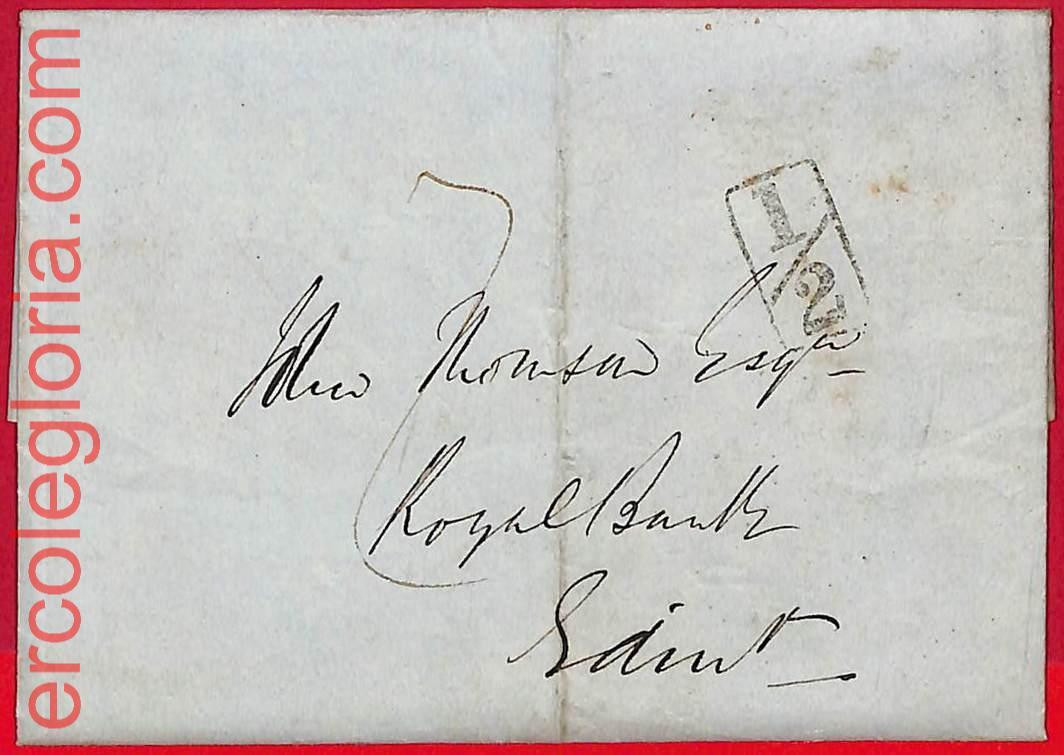 ercolegloria.com
1/2
7
John Thomson Esqr
Royal Bank
Edinr